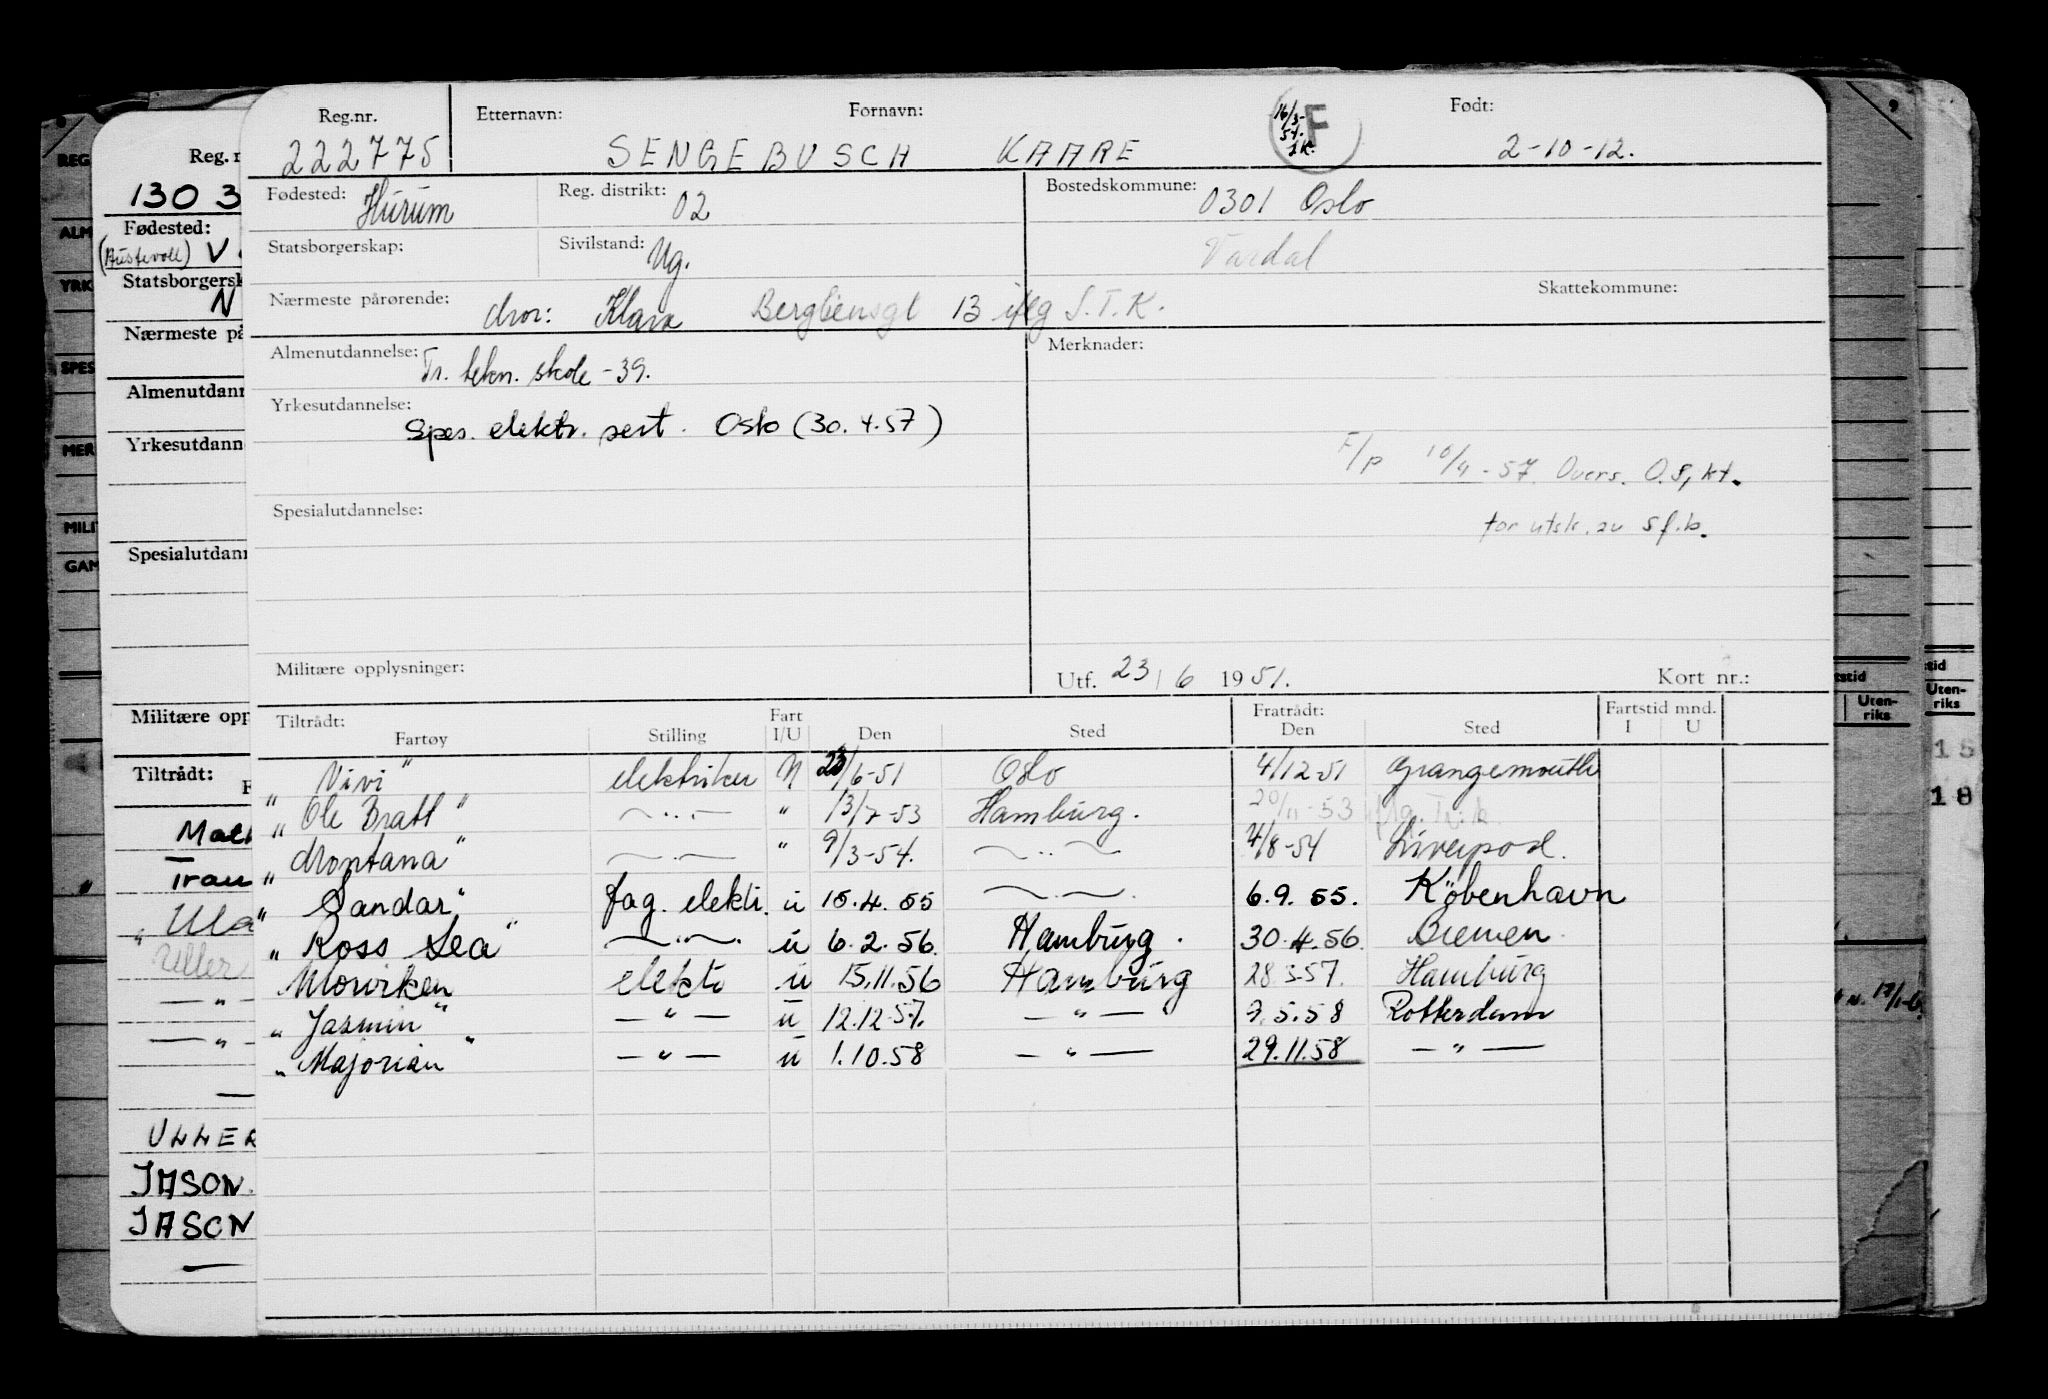 Reg.nr. Etternavn: Fornavn: Født:
222775 SENGEBUSCH KAARE 16/3-54. F 2-10-12.
Fødested: Hurum Reg. distrikt: 02 Bostedskommune: 0301 Oslo
Statsborgerskap: Sivilstand: Ug. Vardal
Nærmeste pårørende: mor: Klara Bergliensgt 13 iflg S.T.K. Skattekommune:
Almenutdannelse: Tr. tekn. skole -39. Merknader:
Yrkesutdannelse:
Spes. elektr. sert. Oslo (30.4.57)
F/p 10/4-57 Overs. O.s, kt.
Spesialutdannelse:
for utsk. av sf.b.
Militære opplysninger: Utf. 23/6 1951. Kort nr.:
Tiltrådt: Fart Fratrådt: Fartstid mnd.
Fartøy Stilling I/U Den Sted Den Sted I U
"Vivi" elektriker N 23/6-51 Oslo 4/12-51 Grangemouth
"Ole Bratt" —..— " 13/7-53 Hamburg. 20/11-53 iflg. Tr.k.
"Montana" —..— " 9/3-54. —..— 4/8-54 Liverpool.
"Sandar" fag. elektr. u 15.4.55 —..— 6.9.55. Köbenhavn
"Ross Sea" —..— u 6.2.56. Hamburg. 30.4.56. Bremen.
Morviken elektr u 15.11.56 Hamburg 28.3.57. Hamburg
"Jasmin" —"— u 12.12.57. —"— 7.5.58 Rotterdam
"Majorian" —"— u 1.10.58 —"— 29.11.58 —"—
Reg. n
130 3
Fødested:
(Austevoll) V
Statsborgersk
N
Nærmeste på
Almenutdann
Yrkesutdann
Spesialutdann
Militære opp
Tiltrådt:
F
"Ula
Uller
—"—
—"—
ULLER
JASON
JASON
REG
ALM
YRK
SPES
MER
MILIT
GAM
9
tstid
Uten-
riks
tid
Uten-
riks
15
18